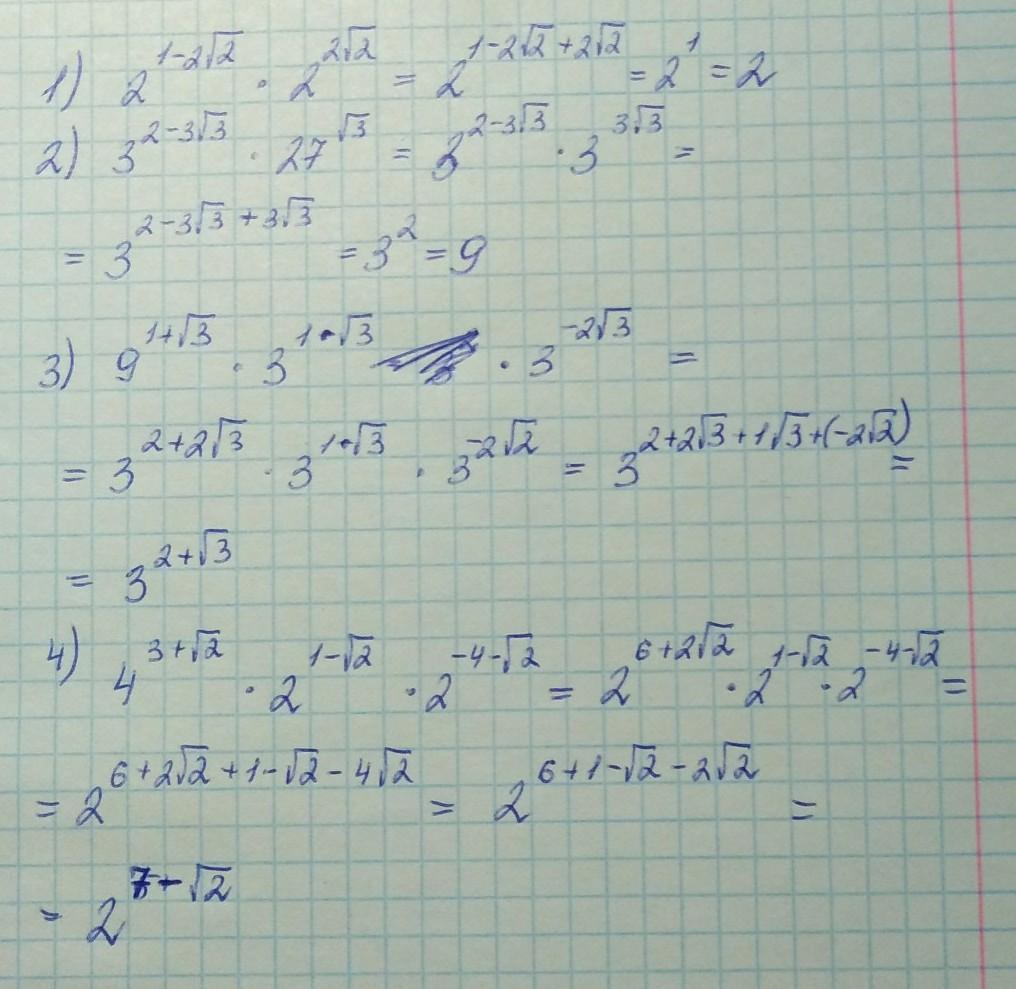 1) 2^{1-2√2} · 2^{2√2} = 2^{1-2√2+2√2} = 2^1 = 2
2) 3^{2-3√3} · 27^{√3} = 3^{2-3√3} · 3^{3√3} =
= 3^{2-3√3+3√3} = 3^2 = 9
3) 9^{1+√3} · 3^{1-√3} · 3^{-2√3} =
= 3^{2+2√3} · 3^{1+√3} · 3^{-2√2} = 3^{2+2√3+1√3+(-2√2)} =
= 3^{2+√3}
4) 4^{3+√2} · 2^{1-√2} · 2^{-4-√2} = 2^{6+2√2} · 2^{1-√2} · 2^{-4-√2} =
= 2^{6+2√2+1-√2-4√2} = 2^{6+1-√2-2√2} =
= 2^{7-√2}